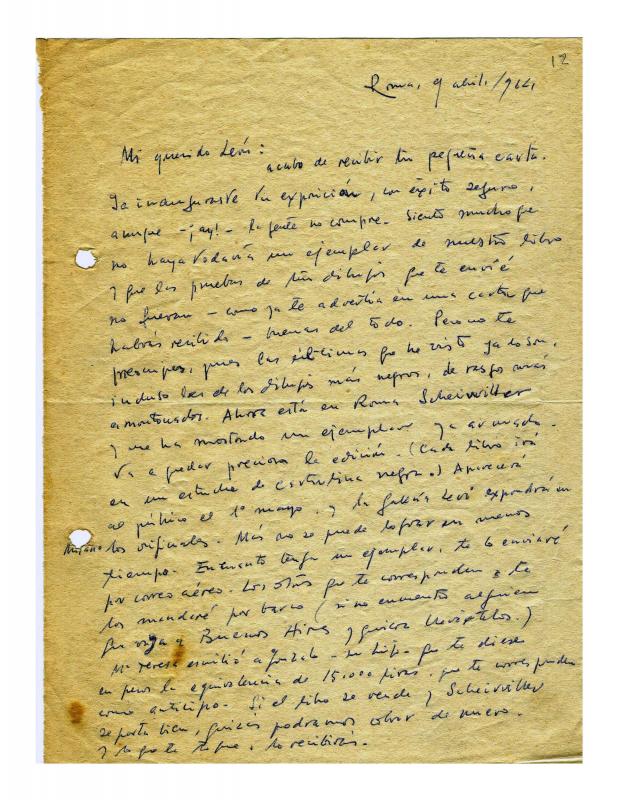 12
Roma, 9 abril/964
Mi querido León:
acabo de recibir tu pequeña carta.
Ya inauguraste tu exposición, con éxito seguro,
aunque -¡ay!- la gente no compre. Siento mucho que
no haya todavía un ejemplar de nuestro libro
y que las pruebas de tus dibujos que te envié
no fueran - como ya te advertía en una carta que
habrás recibido - buenas del todo. Pero no te
preocupes, pues las últimas que he visto ya lo son,
incluso las de los dibujos más negros, de rasgos más
amontonados. Ahora está en Roma Scheiwiller
y me ha mostrado un ejemplar ya armado.
Va a quedar preciosa la edición. (Cada libro irá
en un estuche de cartulina negra.) Aparecerá
al público el 1º mayo. y la Galería Levi expondrá en
Milano los originales. Más no se puede lograr en menos
tiempo. En cuanto tenga un ejemplar, te lo enviaré
por correo aéreo. Los otros que te corresponden te
los mandaré por barco (si no encuentro alguien
que vaya a Buenos Aires y quiera llevártelos.)
Mª Teresa escribió a Gonzalo - su hijo - que te diese
en pesos la equivalencia de 15.000 liras, que te corresponden
como anticipo. Si el libro se vende y Scheiwiller
se porta bien, quizás podramos cobrar de nuevo.
y lo que te toque, lo recibirás.